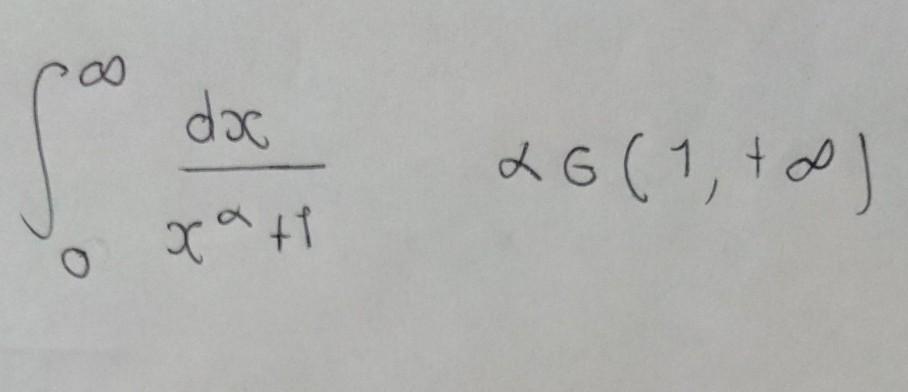 ∫₀^∞ dx/(x^α+1) α∈(1,+∞)